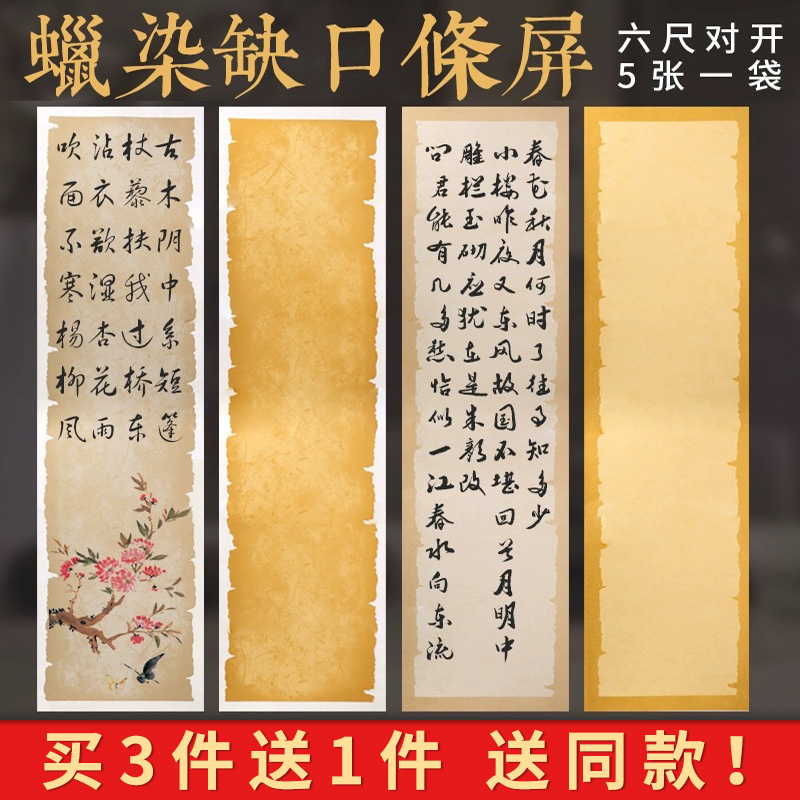 蠟染缺口條屏
六尺对开
5张一袋
古木阴中系短篷
杖藜扶我过桥东
沾衣欲湿杏花雨
吹面不寒楊柳风
春花秋月何时了往事知多少
小楼昨夜又东风故国不堪回首月明中
雕栏玉砌应犹在是朱颜改
问君能有几多愁恰似一江春水向东流
买3件送1件 送同款！